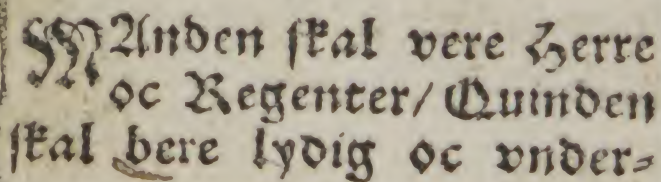 MAnden skal vere Herre
oc Regenter/ Quinden
skal bere lydig oc vnder⸗